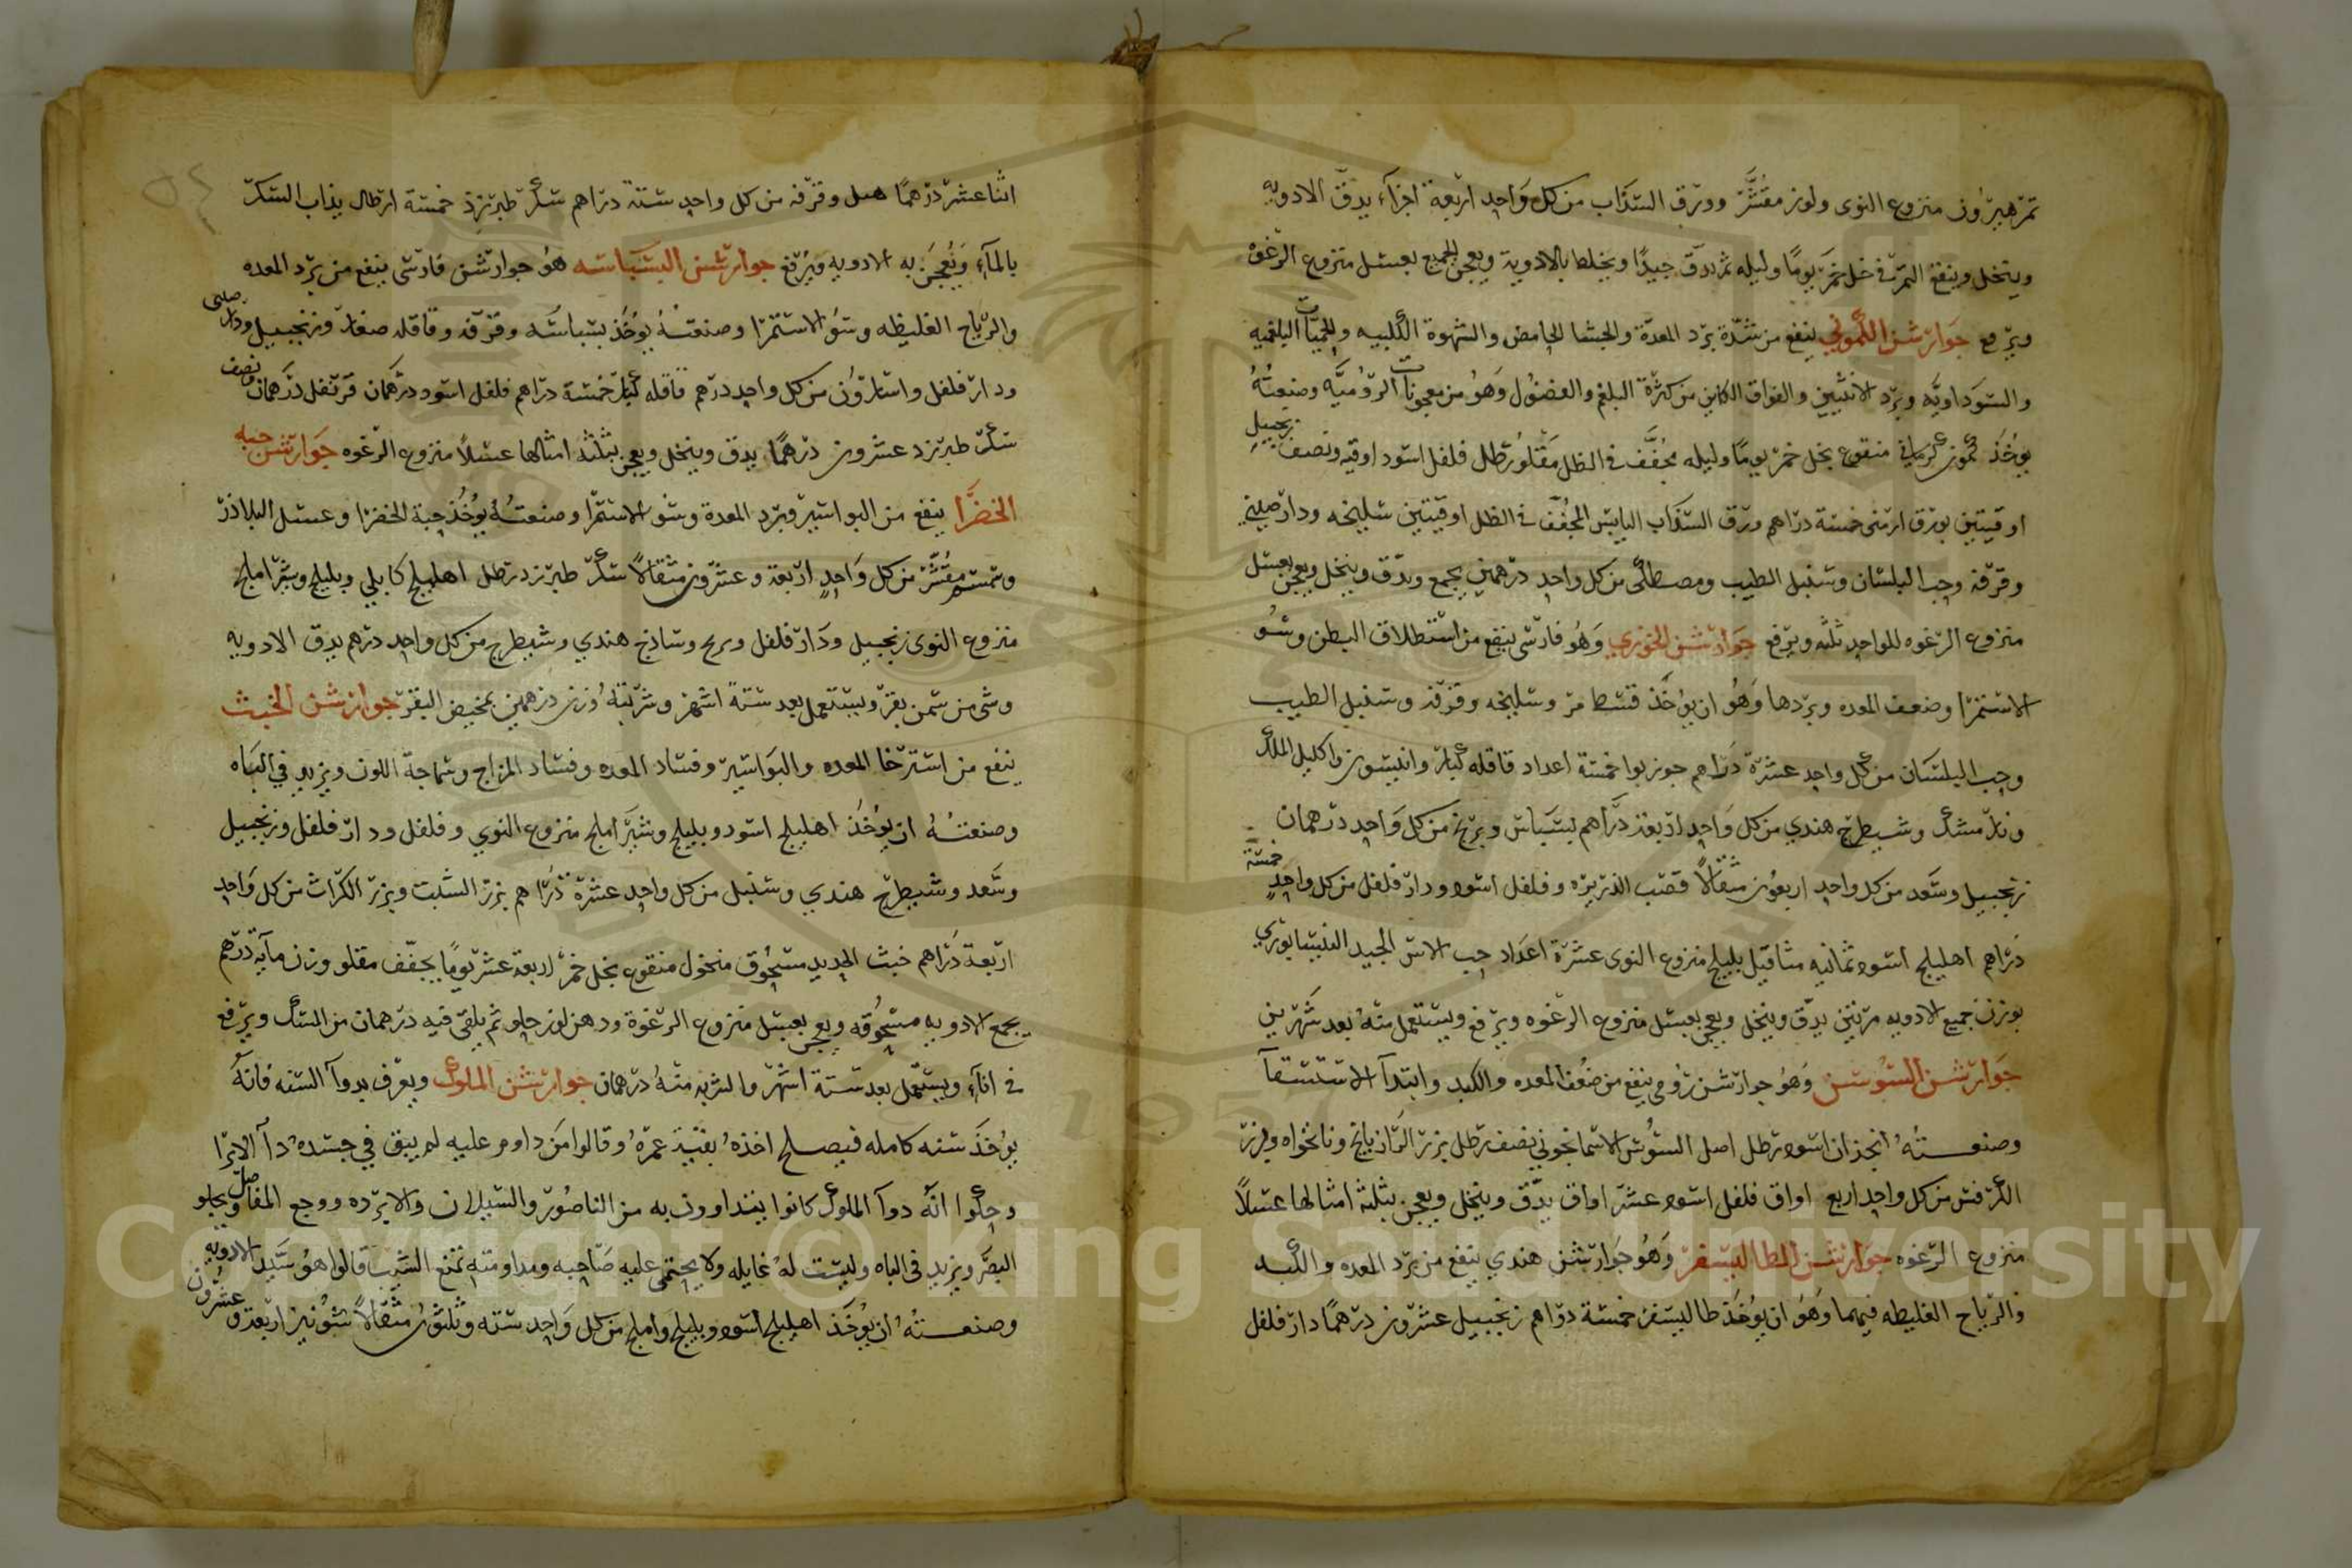 تمر هيرون منزوع النوى ولوز مقشر وورق السذاب من كل واحد اربعة اجزاء يدق الادويه
وينخل وينقع التمر في خل خمر يوما وليله ثم يدق جيدا ويخلط بالادوية ويعجن الجميع بعسل منزوع الرغوه
ويرفع جوارشن الكموني ينفع من شدة برد المعدة والجشا الحامض والشهوة الكلبيه والحميات البلغميه
والسوداويه وبرد الانثيين والفواق الكاين من كثرة البلغم والفضول وهو من معجونات الروميه وصنعته
يوخذ كمون كرماني منقوع بخل خمر يوما وليله مجفف في الظل مقلو رطل فلفل اسود اوقيه ونصف زنجبيل
اوقيتين بورق ارمنى خمسة دراهم ورق السذاب اليابس المجفف في الظل اوقيتين سليخه ودارصيني
وقرفة وحب البلسان وسنبل الطيب ومصطكى من كل واحد درهمين يجمع ويدق وينخل ويعجن بعسل
منزوع الرغوه للواحد ثلثه ويرفع جوارشن الخوزي وهو فارسى ينفع من استطلاق البطن وسو
الاستمرا وضعف المعده وبردها وهو ان يوخذ قسط مر وسليخه وقرفه وسنبل الطيب
وحب البلسان من كل واحد عشرة دراهم جوزبوا خمسة اعداد قاقله كبار وانيسون واكليل الملك
و مشك وشيطرج هندي من كل واحد اربعة دراهم بسباس وبرنج من كل واحد درهمان
زنجبيل وسعد من كل واحد اربعون مثقالا قصب الذريره وفلفل اسود ودار فلفل من كل واحد خمسة
دراهم اهليلج اسود ثمانيه مثاقيل بليلج منزوع النوى عشرة اعداد حب الاس الجيد النيسابوري
يوزن جميع الادويه مرتين يدق وينخل ويعجن بعسل منزوع الرغوه ويرفع ويستعمل منه بعد شهرين
جوارشن السوسن وهو جوارشن رومى ينفع من ضعف المعده والكبد وابتدآ الاستسقآ
وصنعته انجذان اسود رطل اصل السوسن الاسمانجوني نصف رطل بزر الرازيانج ونانخواه وبزر
الكرفس من كل واحد اربع اواق فلفل اسود عشر اواق يدق وينخل ويعجن بثلثة امثالها عسلا
منزوع الرغوه جوارشن الطاليسفر وهو جوارشن هندي ينفع من برد المعده والكبد
والرياح الغليظه فيهما وهو ان يوخذ طاليسفر خمسة دراهم زنجبيل عشرون درهما دار فلفل
اثنا عشر درهما هيل وقرفه من كل واحد ستة دراهم سكر طبرزذ خمسة ارطال يذاب السكر
بالمآء ويعجن به الادويه ويرفع جوارشن البسباسه هو جوارشن فارسى ينفع من برد المعده
والرياح الغليظه وسو الاستمرا وصنعته يوخذ بسباسه وقرفه وقاقله صغار وزنجبيل ودارصينى
ودار فلفل واسارون من كل واحد درهم قاقله كبار خمسة دراهم فلفل اسود درهمان قرنفل درهمان ونصف
سكر طبرزد عشرون درهما يدق وينخل ويعجن بثلثة امثالها عسلا منزوع الرغوه جوارشن حبه
الخضرا ينفع من البواسير وبرد المعدة وسو الاستمرا وصنعته يوخذ حبة الخضرا وعسل البلاذر
وسمسم مقشر من كل واحد اربعة وعشرون مثقالا سكر طبرزد رطل اهليلج كابلي وبليلج وشير املج
منزوع النوى زنجبيل ودار فلفل وبرنج وساذج هندي وشيطرج من كل واحد درهم يدق الادويه
وشى من سمن بقر ويستعمل بعد ستة اشهر وشربته وزن درهمين بمخيض البقر جوارشن الخبث
ينفع من استرخا المعده والبواسير وفساد المعده وفساد المزاج وسماجة اللون ويزيد في الباه
وصنعته ان يوخذ اهليلج اسود وبليلج وشير املج منزوع النوي وفلفل ودار فلفل وزنجبيل
وسعد وشيطرج هندي وسنبل من كل واحد عشرة دراهم بزر الشبت وبزر الكراث من كل واحد
اربعة دراهم خبث الحديد مسحوق منخول منقوع بخل خمر اربعة عشر يوما يجفف مقلو وزن مآية درهم
يجمع الادويه مسحوقه ويعجن بعسل منزوع الرغوة ودهن لوز حلو ثم يلقى فيه درهمان من السك ويرفع
في انآء ويستعمل بعد ستة اشهر والشربه منه درهمان جوارشن الملوك ويعرف بدوآ السنه فانه
يوخذ سنه كامله فيصلح اخذه بقية عمره وقالوا من داوم عليه لم يبق في جسده دآ الا برا
وحكوا انه دوآ الملوك كانوا يتداوون به من الناصور والسيلان والابرده ووجع المفاصل ويجلو
البصر ويزيد في الباه وليست له غايله ولا يحتمى عليه صاحبه ومداومته تمنع الشيب قالوا هو سيد الادويه
وصنعته ان يوخذ اهليلج اسود وبليلج واملج من كل واحد سته وثلثون مثقالا شونيز اربعة وعشرون
Copyright © King Saud University
1957